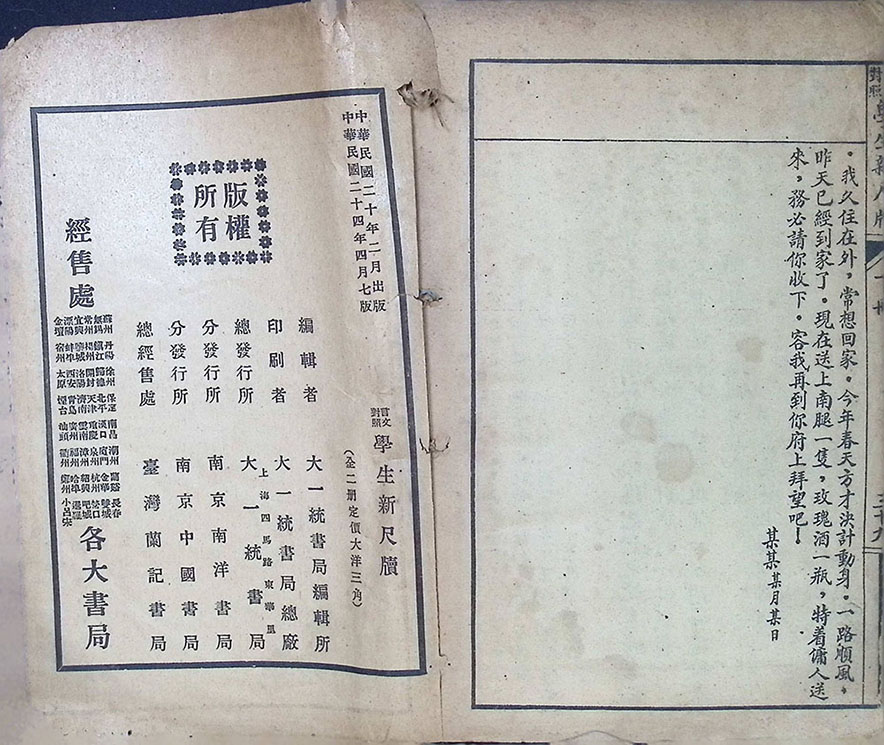 對照
學生新尺牘
三十九
。我久住在外，常想回家。今年春天方才決計動身。一路順風，
昨天已經到家了。現在送上南腿一隻，玫瑰酒一瓶，特着傭人送
來，務必請你收下。容我再到你府上拜望吧！
某某 某月某日
中華民國二十年二月出版
中華民國二十四年四月七版
言文對照
學生新尺牘
（全二册定價大洋三角）
編輯者 大一統書局編輯所
印刷者 大一統書局總廠
上海四馬路東華里
總發行所 大一統書局
分發行所 南京南洋書局
分發行所 南京中國書局
總經售處 臺灣蘭記書局
版權
所有
經售處
蘇州 無錫 常州 宜興 溧陽 金壇
丹陽 鎮江 揚州 蚌埠 宿州
徐州 歸德 開封 洛陽 西安 太原
保定 北平 天津 濟南 青島 煙台
南昌 漢口 重慶 雲南 廣州 汕頭
潮州 廈門 泉州 漳州 福州 衢州
蘭谿 金華 杭州 紹興 哈埠 鄭州
長春 雙城 營口 暹羅 小呂宋
各大書局